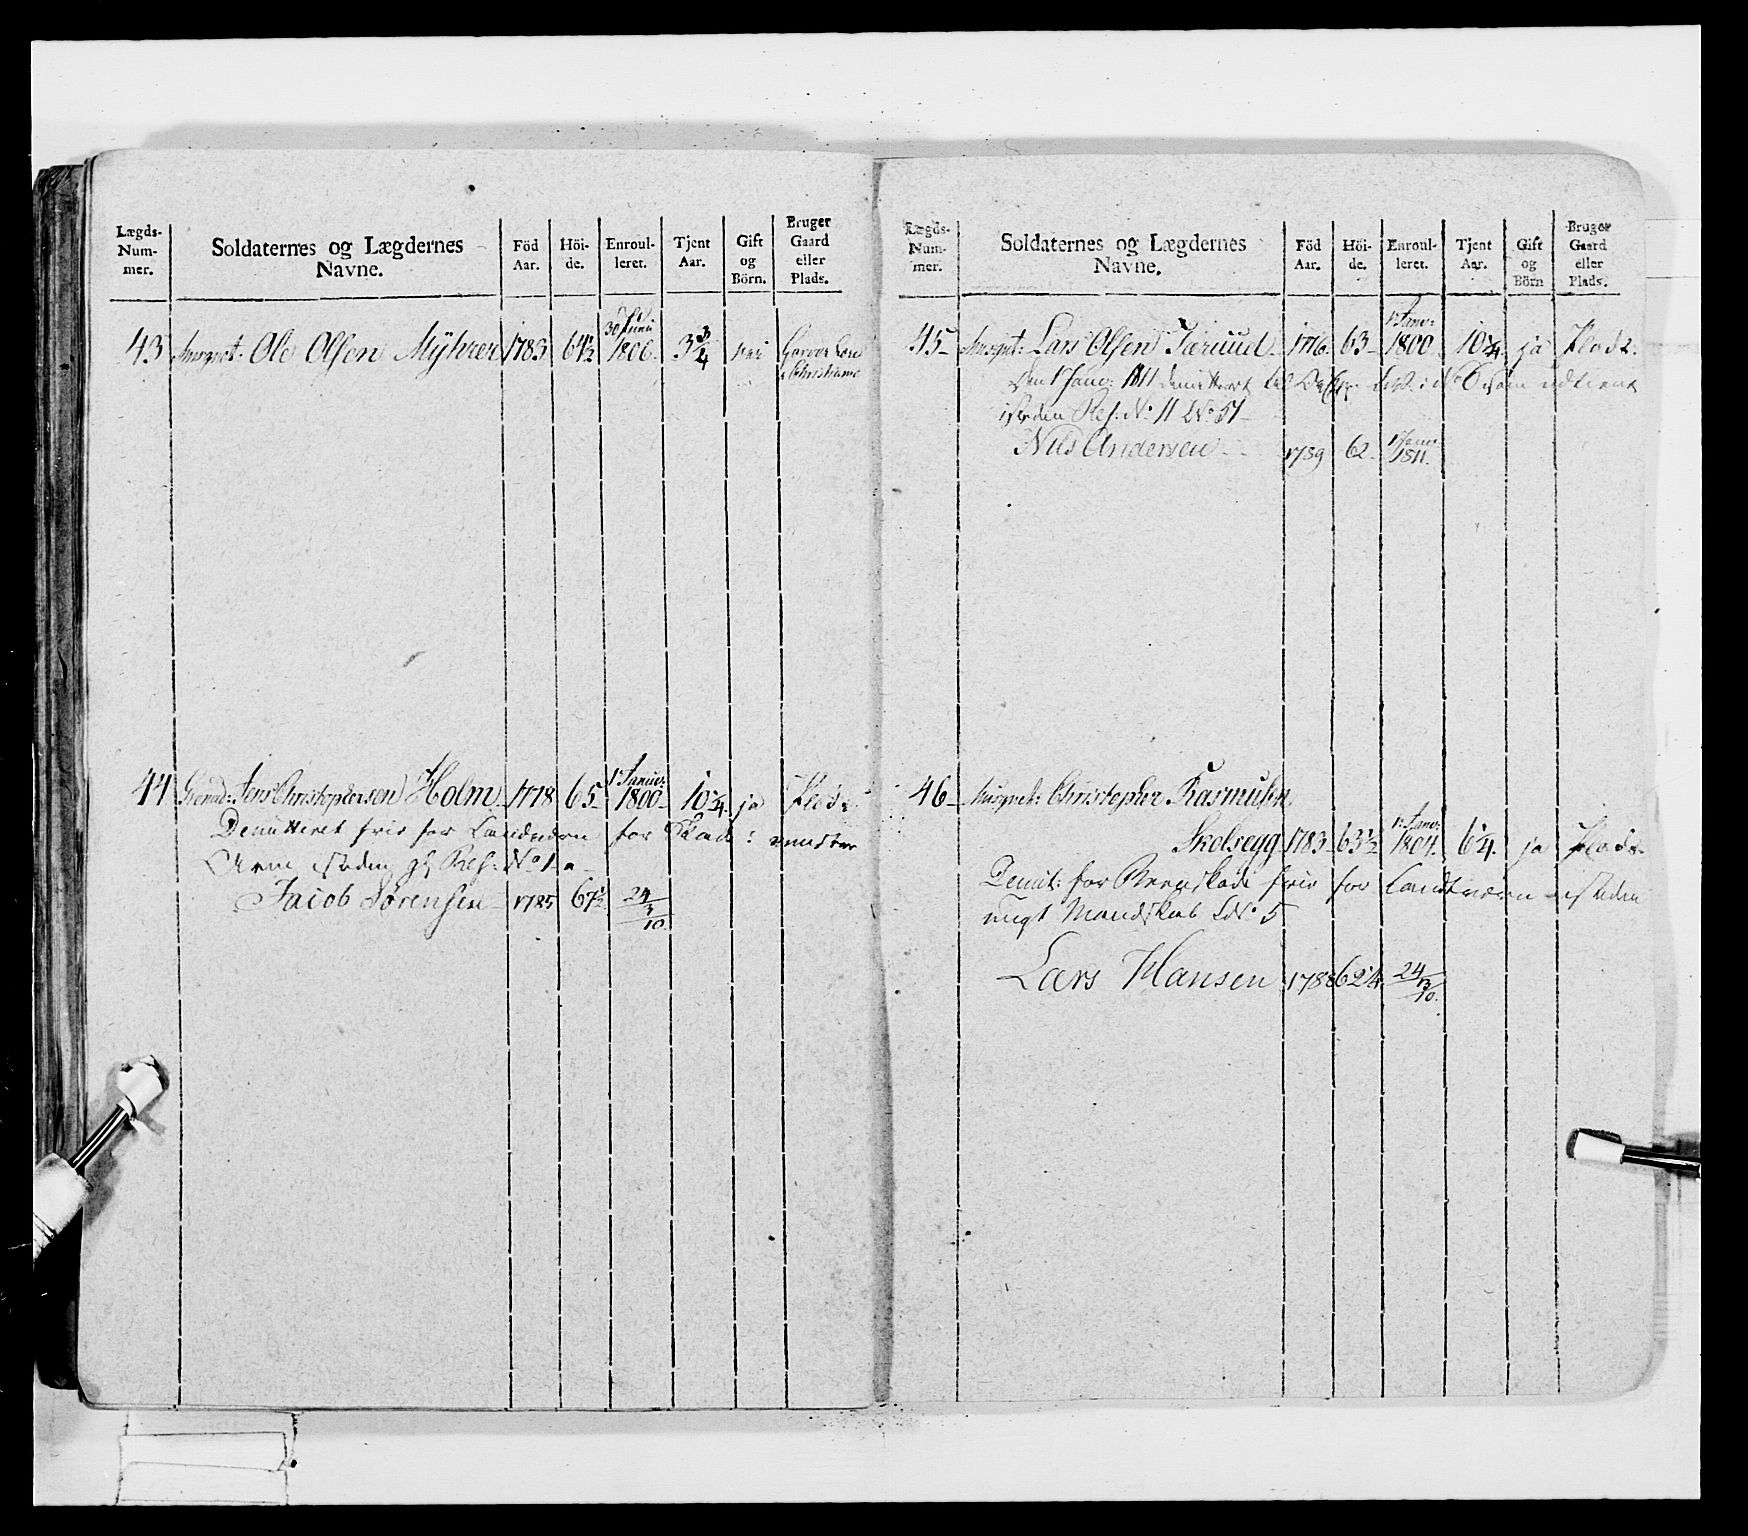 Lægds-
Num-
mer.
Soldaternes og Lægdernes
Navne.
Föd
Aar.
Höi-
de.
Enroul-
leret.
Tjent
Aar.
Gift
og
Börn.
Bruger
Gaard
eller
Plads.
43 Musqet. Ole Olsen Myhrer 1783 64½ 30 Juni 1806 3¾ nei
Christiania
44 Grenad: Jens Christophersen Holm 1778 65 1 Januar: 1800 10¼ ja Plads
Demitteret for Landværn for Skade :
Arm isteden Ref: No 1
Jacob Sørensen 1785 67½ 24/3/10
Lægds-
Num-
mer.
Soldaternes og Lægdernes
Navne.
Föd
Aar.
Höi-
de.
Enroul-
leret.
Tjent
Aar.
Gift
og
Börn
Bruger
Gaard
eller
Plads.
45 Musqet: Lars Olsen 1776 63 1 Janv: 1800 10¼ ja Plads.
Den 1 Janv: 1811 demitteret som udtient
isteden Ref: No 11 No 51
Nils Andersen 1789 62 1 Janv: 1811.
46 Musqet: Christopher Rasmusen
Skolsegg 1783 63½ 1 Janv: 1804. 6¼ ja Plads
Demit: for Brokskade for Landtværn isteden
ungt Mandskab No 5
Lars Hansen 1788 62¼ 24/3/10.